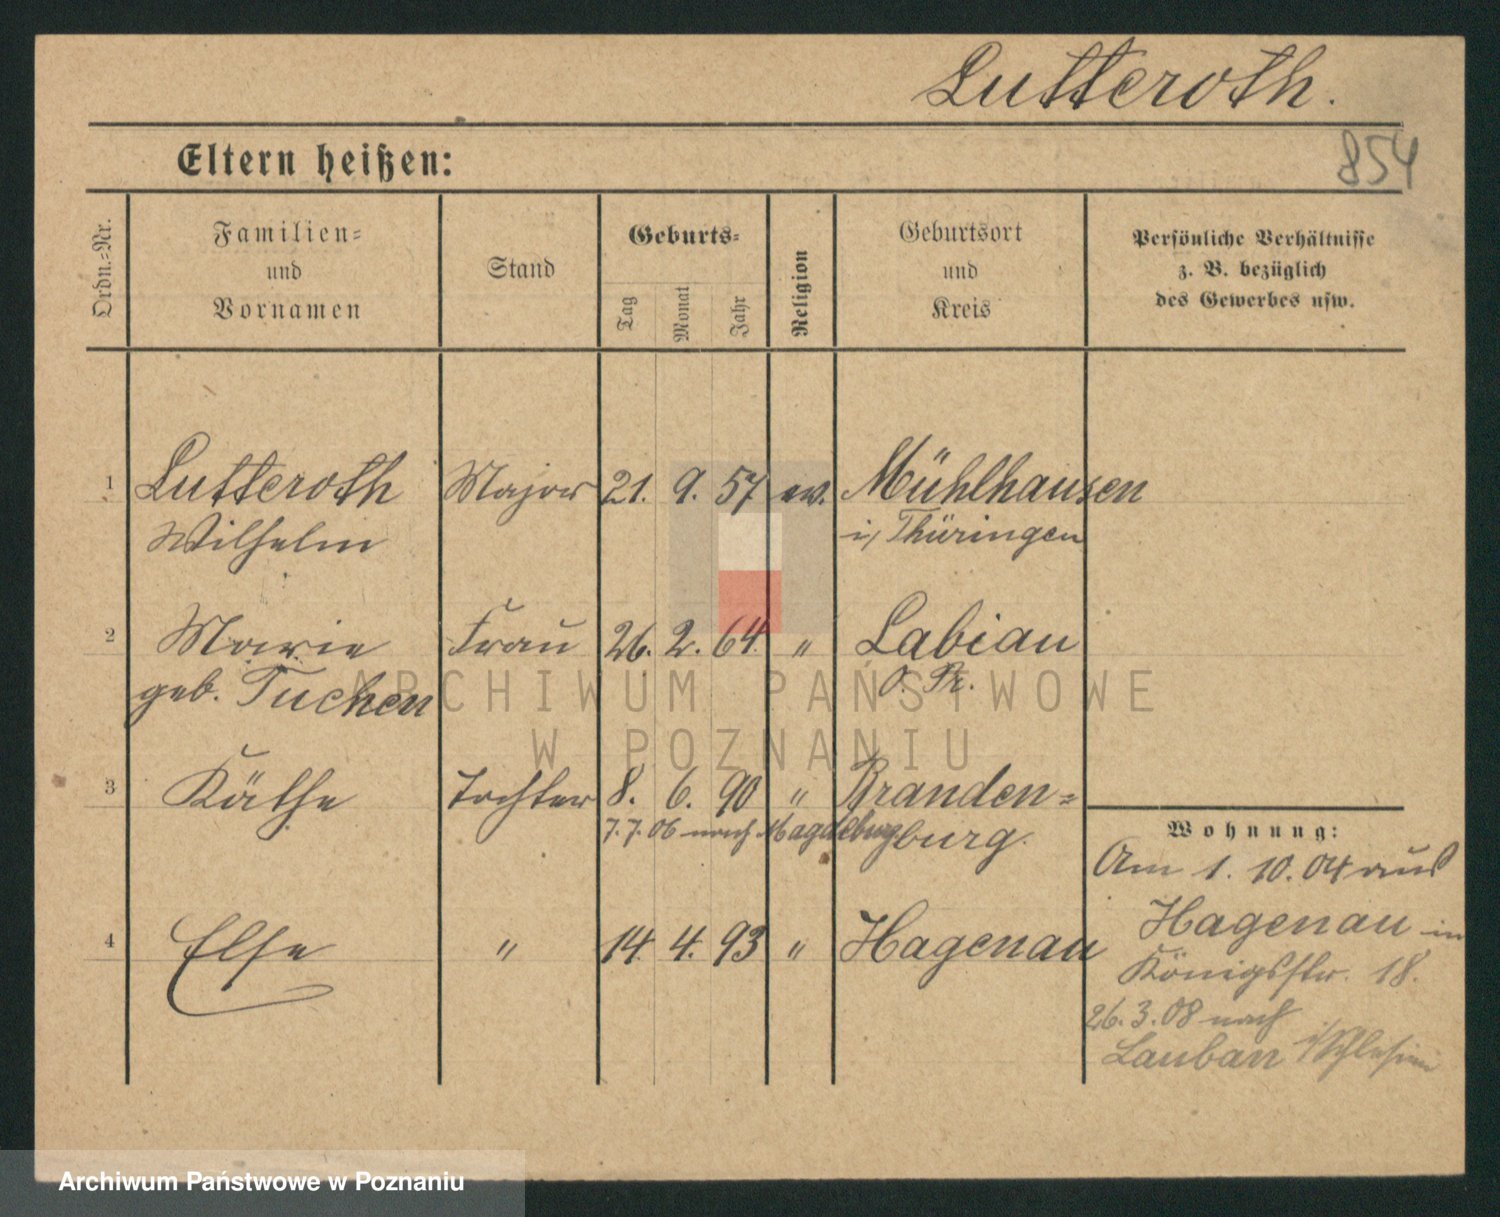 Lutteroth.
Eltern heißen:
854
Ordn.=Nr.
Familien=
und
Vornamen
Stand
Geburts=
Tag
Monat
Jahr
Religion
Geburtsort
und
Kreis
Persönliche Verhältnisse
z. B. bezüglich
des Gewerbes usw.
1 Lutteroth Major 21. 9. 57 ev. Mühlhausen
Wilhelm i/ Thüringen
2 Marie Frau 26. 2. 64. " Labiau
geb. Tuchen O. Pr.
ARCHIWUM PAŃSTWOWE
W POZNANIU
3 Käthe Tochter 8. 6. 90 " Branden=
7.7.06 nach Magdeburg burg.
4 Else " 14. 4. 93 " Hagenau
Wohnung:
Am 1. 10. 04 aus
Hagenau in
Königsstr. 18.
26. 3. 08 nach
Lauban i/Schlesien
Archiwum Państwowe w Poznaniu